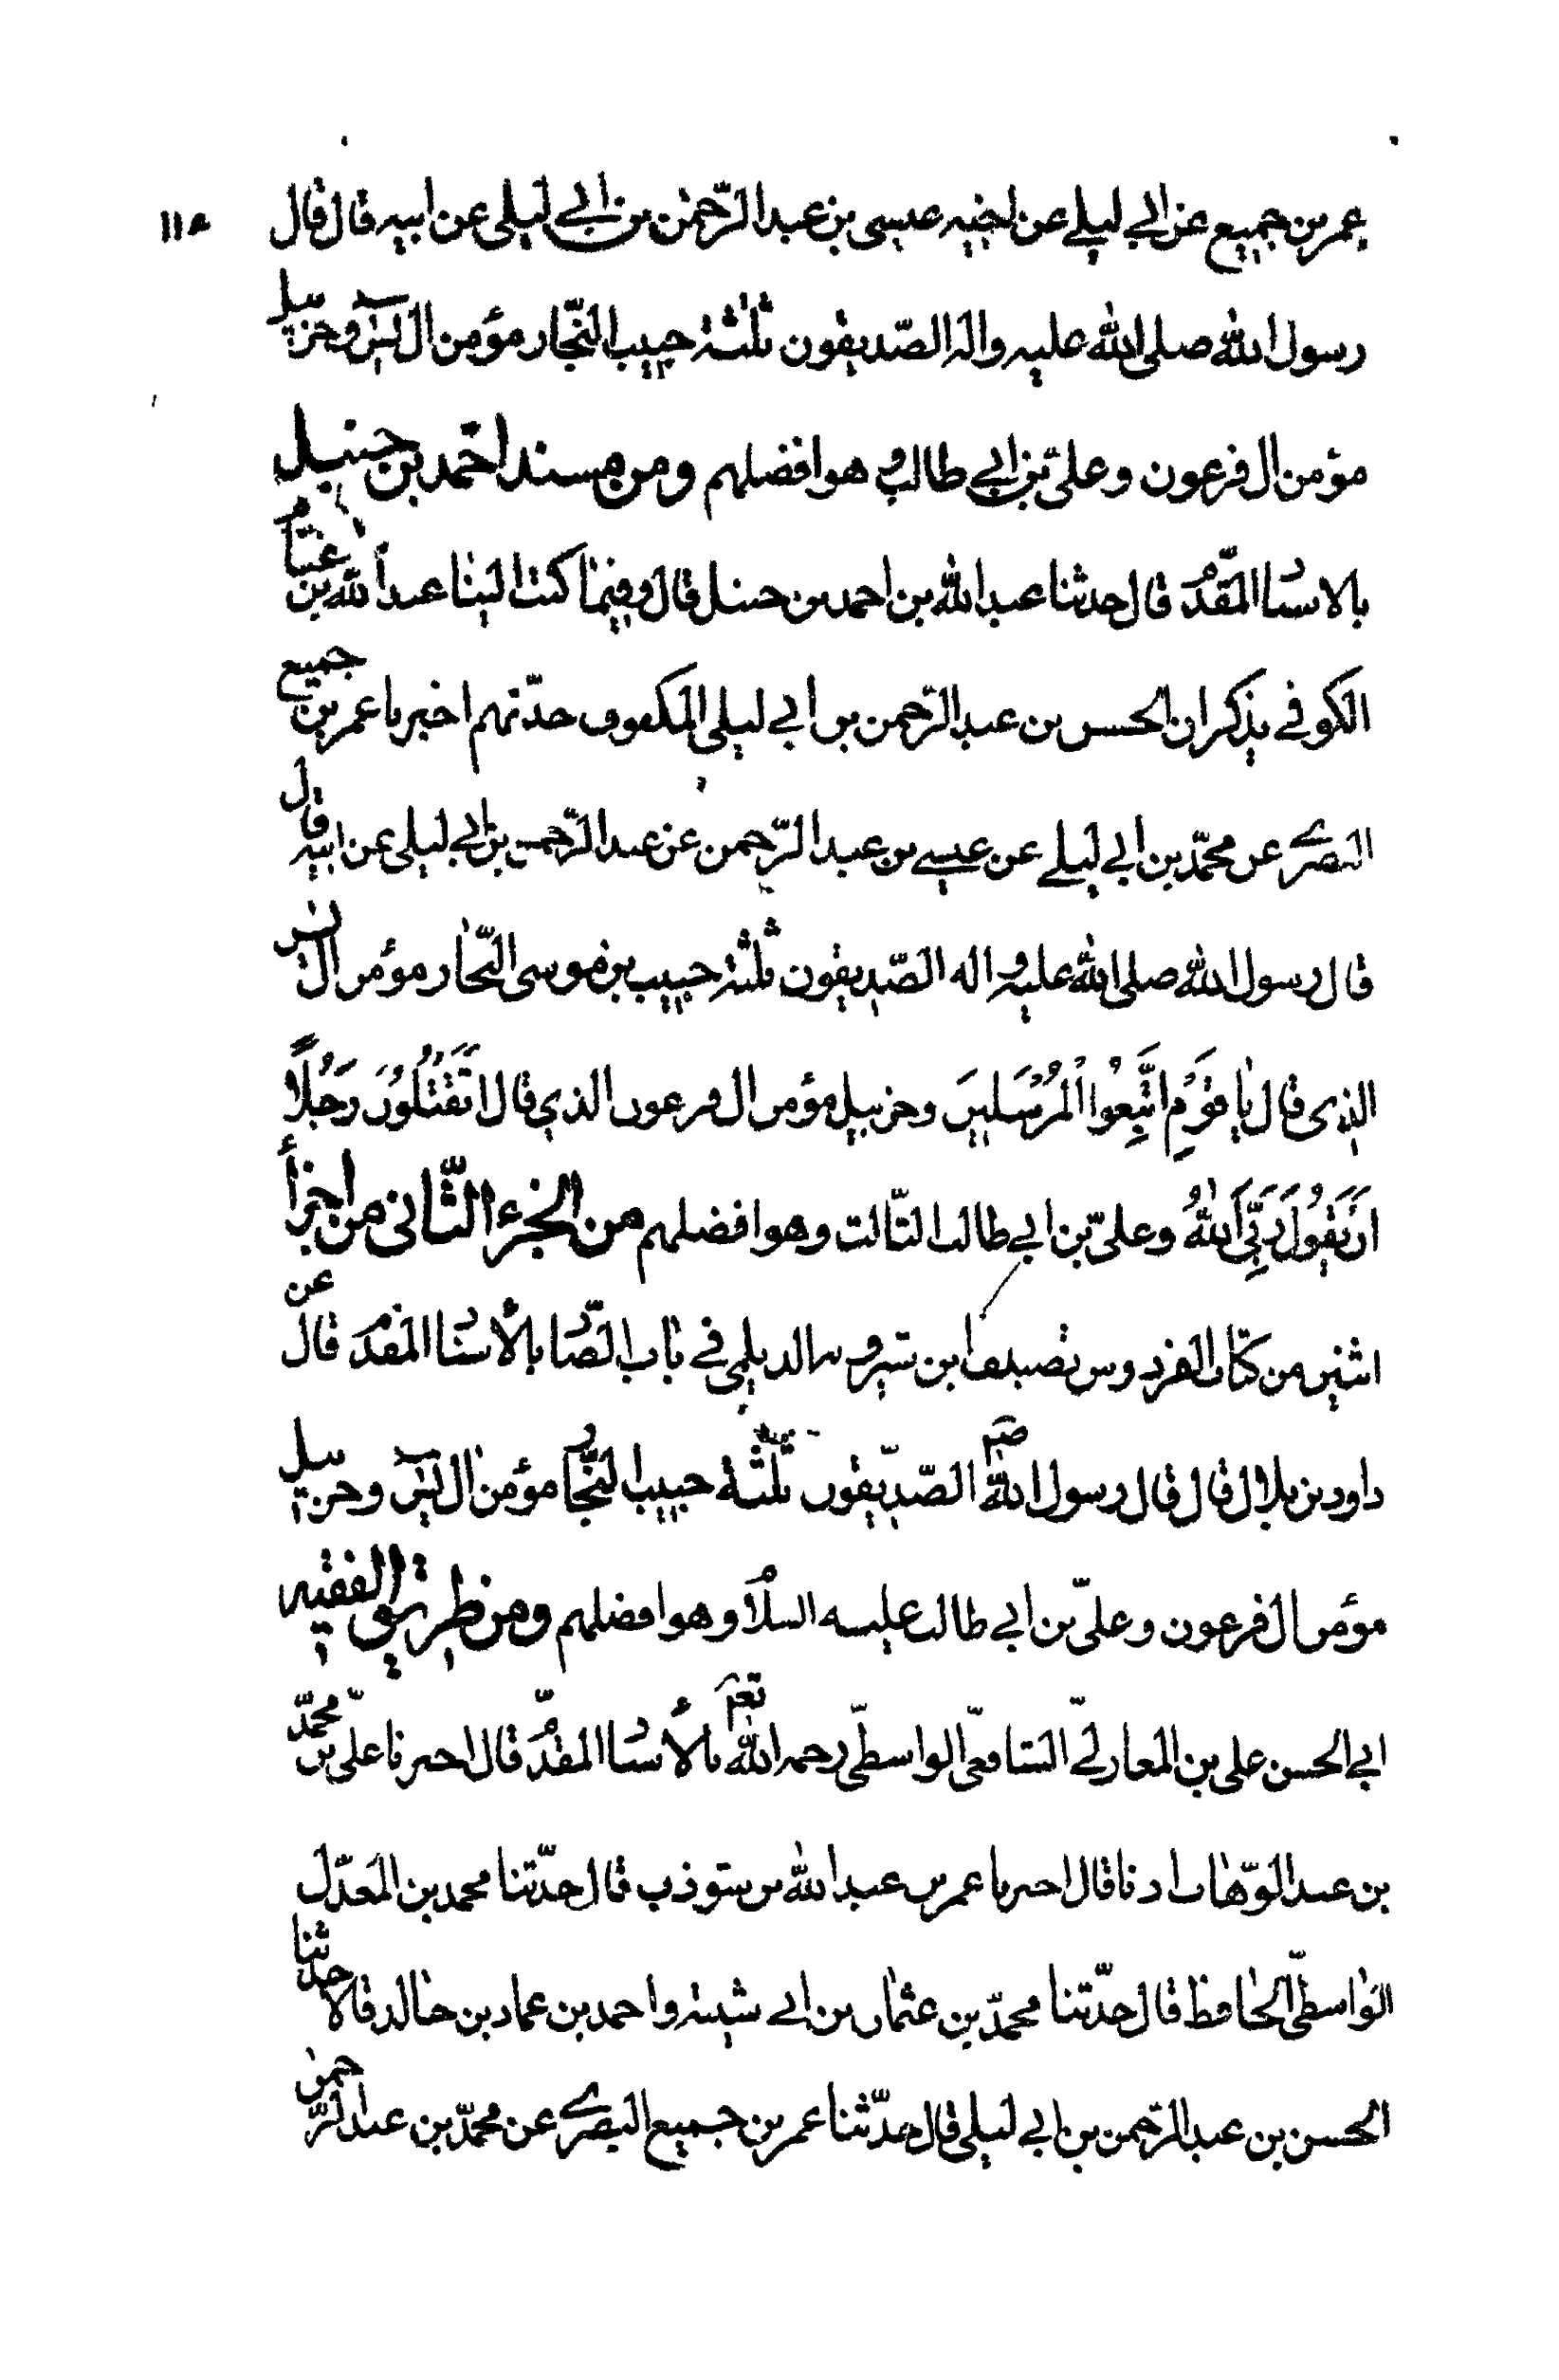 عمر بن جميع عن ابي ليلے عن اخيه عيسى بن عبد الرّحمٰن بن ابي ليلى عن ابيه قال قال
رسول الله صلى الله عليه واله الصّديقون ثلثة حبيب النجّار مؤمن ال يٰسٓ وحزبيل
مؤمن ال فرعون وعلىّ بن ابي طالب وهو افضلهم ومن مسند احمد بن حنبل
بالاسناد المقدّم قال حدثنا عبد الله بن احمد بن حنبل قال وفيما كتب الينا عبد الله بن غنام
الكوفي يذكر ان الحسن بن عبد الرّحمن بن ابي ليلى المكفوف حدّثهم اخبرنا عمر بن جميع
البصرے عن محمّد بن ابي ليلے عن عيسے بن عبد الرّحمن عن عبد الرّحمن بن ابي ليلى عن ابيه قال
قال رسول الله صلى الله عليه واله الصّديقون ثلثة حبيب بن موسى النّجار مؤمن ال يس
الذى قال يا قَوْمِ اتَّبِعُوا الْمُرْسَلينَ وحزبيل مؤمن ال فرعون الذي قال اَتَقْتُلُونَ رَجُلاً
اَنْ يَقُولَ رَبِّيَ اللهُ وعلىّ بن ابي طالب الثّالث وهو افضلهم من الجزء الثّانى من اجزأ
اثنين من كتاب الفردوس تصنيف ابن شيرويه الديلمى في باب الصّاد بالأسناد المقدم قال عن
داود بن بلال قال قال رسول الله ص الصّديقون ثلثة حبيب النجّار مؤمن ال يٰسٓ وحزبيل
مؤمن ال فرعون وعلىّ بن ابي طالب عليه السلام وهو افضلهم ومن طريق الفقيه
ابي الحسن على بن المغازلي الشافعىّ الواسطىّ رحمه الله تعم بالأسناد المقدّم قال اخبرنا على بن محمّد
بن عبد الوهّاب اذنا قال اخبرنا عمر بن عبد الله بن شوذب قال حدّثنا محمد بن المعدّل
الواسطىّ الحافظ قال حدّثنا محمّد بن عثمان بن ابي شيبة واحمد بن عماد بن خالد قالا حدثنا
الحسن بن عبد الرّحمن بن ابي ليلى قال حدّثنا عمر بن جميع البصرے عن محمّد بن عبد الرّحمن